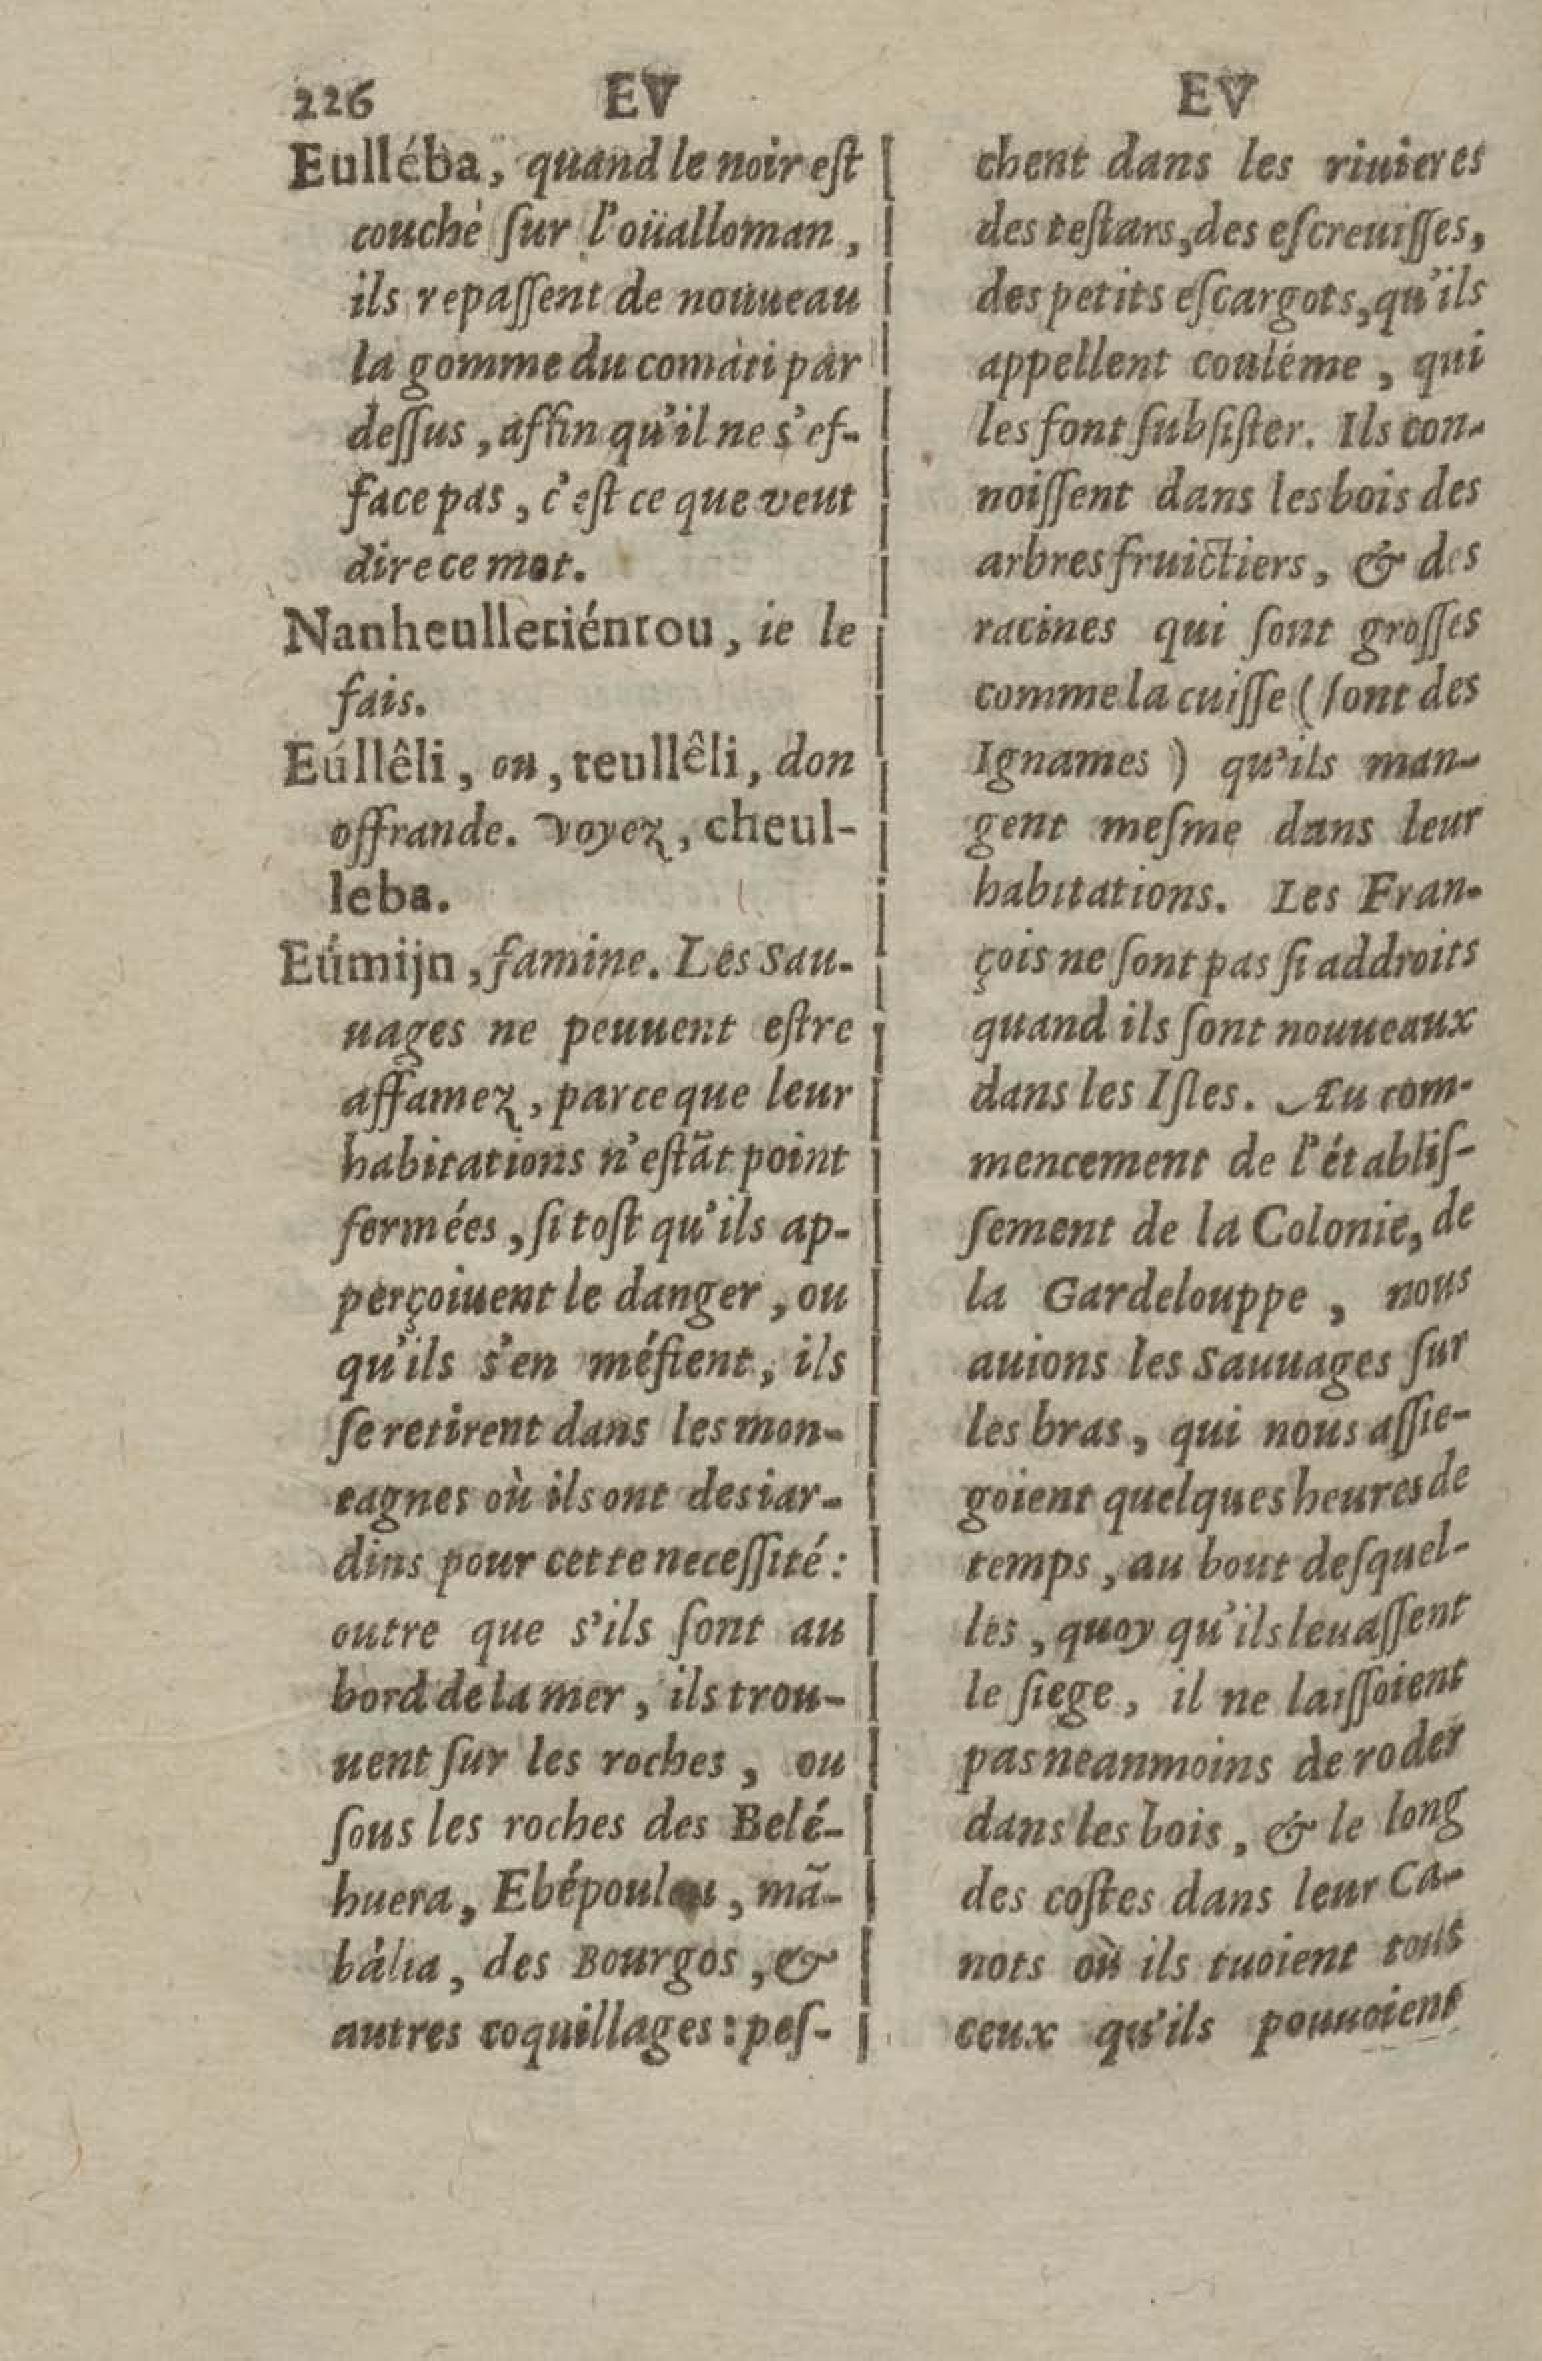 226 EV EV
Eulléba, quand le noir eſt
couché ſur l'oüalloman,
ils repaſſent de nouueau
la gomme du comáti par
deſſus, affin qu'il ne s'ef-
face pas, c'eſt ce que veut
dire ce mot.
Nanheulletiéntou, ie le
fais.
Eúllêli, ou, teullêli, don
offrande. Voyez, cheul-
leba.
Eúmijn, famine. Les Sau-
uages ne peuuent eſtre
affamez, parce que leur
habitations n'eſtãt point
fermées, ſi toſt qu'ils ap-
perçoiuent le danger, ou
qu'ils s'en méfient, ils
ſe retirent dans les mon-
tagnes où ils ont des iar-
dins pour cette neceſſité:
outre que s'ils ſont au
bord de la mer, ils trou-
uent ſur les roches, ou
ſous les roches des Belé-
huera, Ebépoulou, mã-
bàlia, des Bourgos, &
autres coquillages: peſ-
chent dans les riuieres
des teſtars, des eſcreuiſſes,
des petits eſcargots, qu'ils
appellent couléme, qui
les font ſubſiſter. Ils con-
noiſſent dans les bois des
arbres fruictiers, & des
racines qui ſont groſſes
comme la cuiſſe (ſont des
Ignames) qu'ils man-
gent meſme dans leur
habitations. Les Fran-
çois ne ſont pas ſi addroits
quand ils ſont nouueaux
dans les Iſles. Au com-
mencement de l'établiſ-
ſement de la Colonie, de
la Gardelouppe, nous
auions les Sauuages ſur
les bras, qui nous aſſie-
goient quelques heures de
temps, au bout deſquel-
les, quoy qu'ils leuaſſent
le ſiege, il ne laiſſoient
pas neanmoins de roder
dans les bois, & le long
des coſtes dans leur Ca-
nots où ils tuoient tous
ceux qu'ils pouuoient